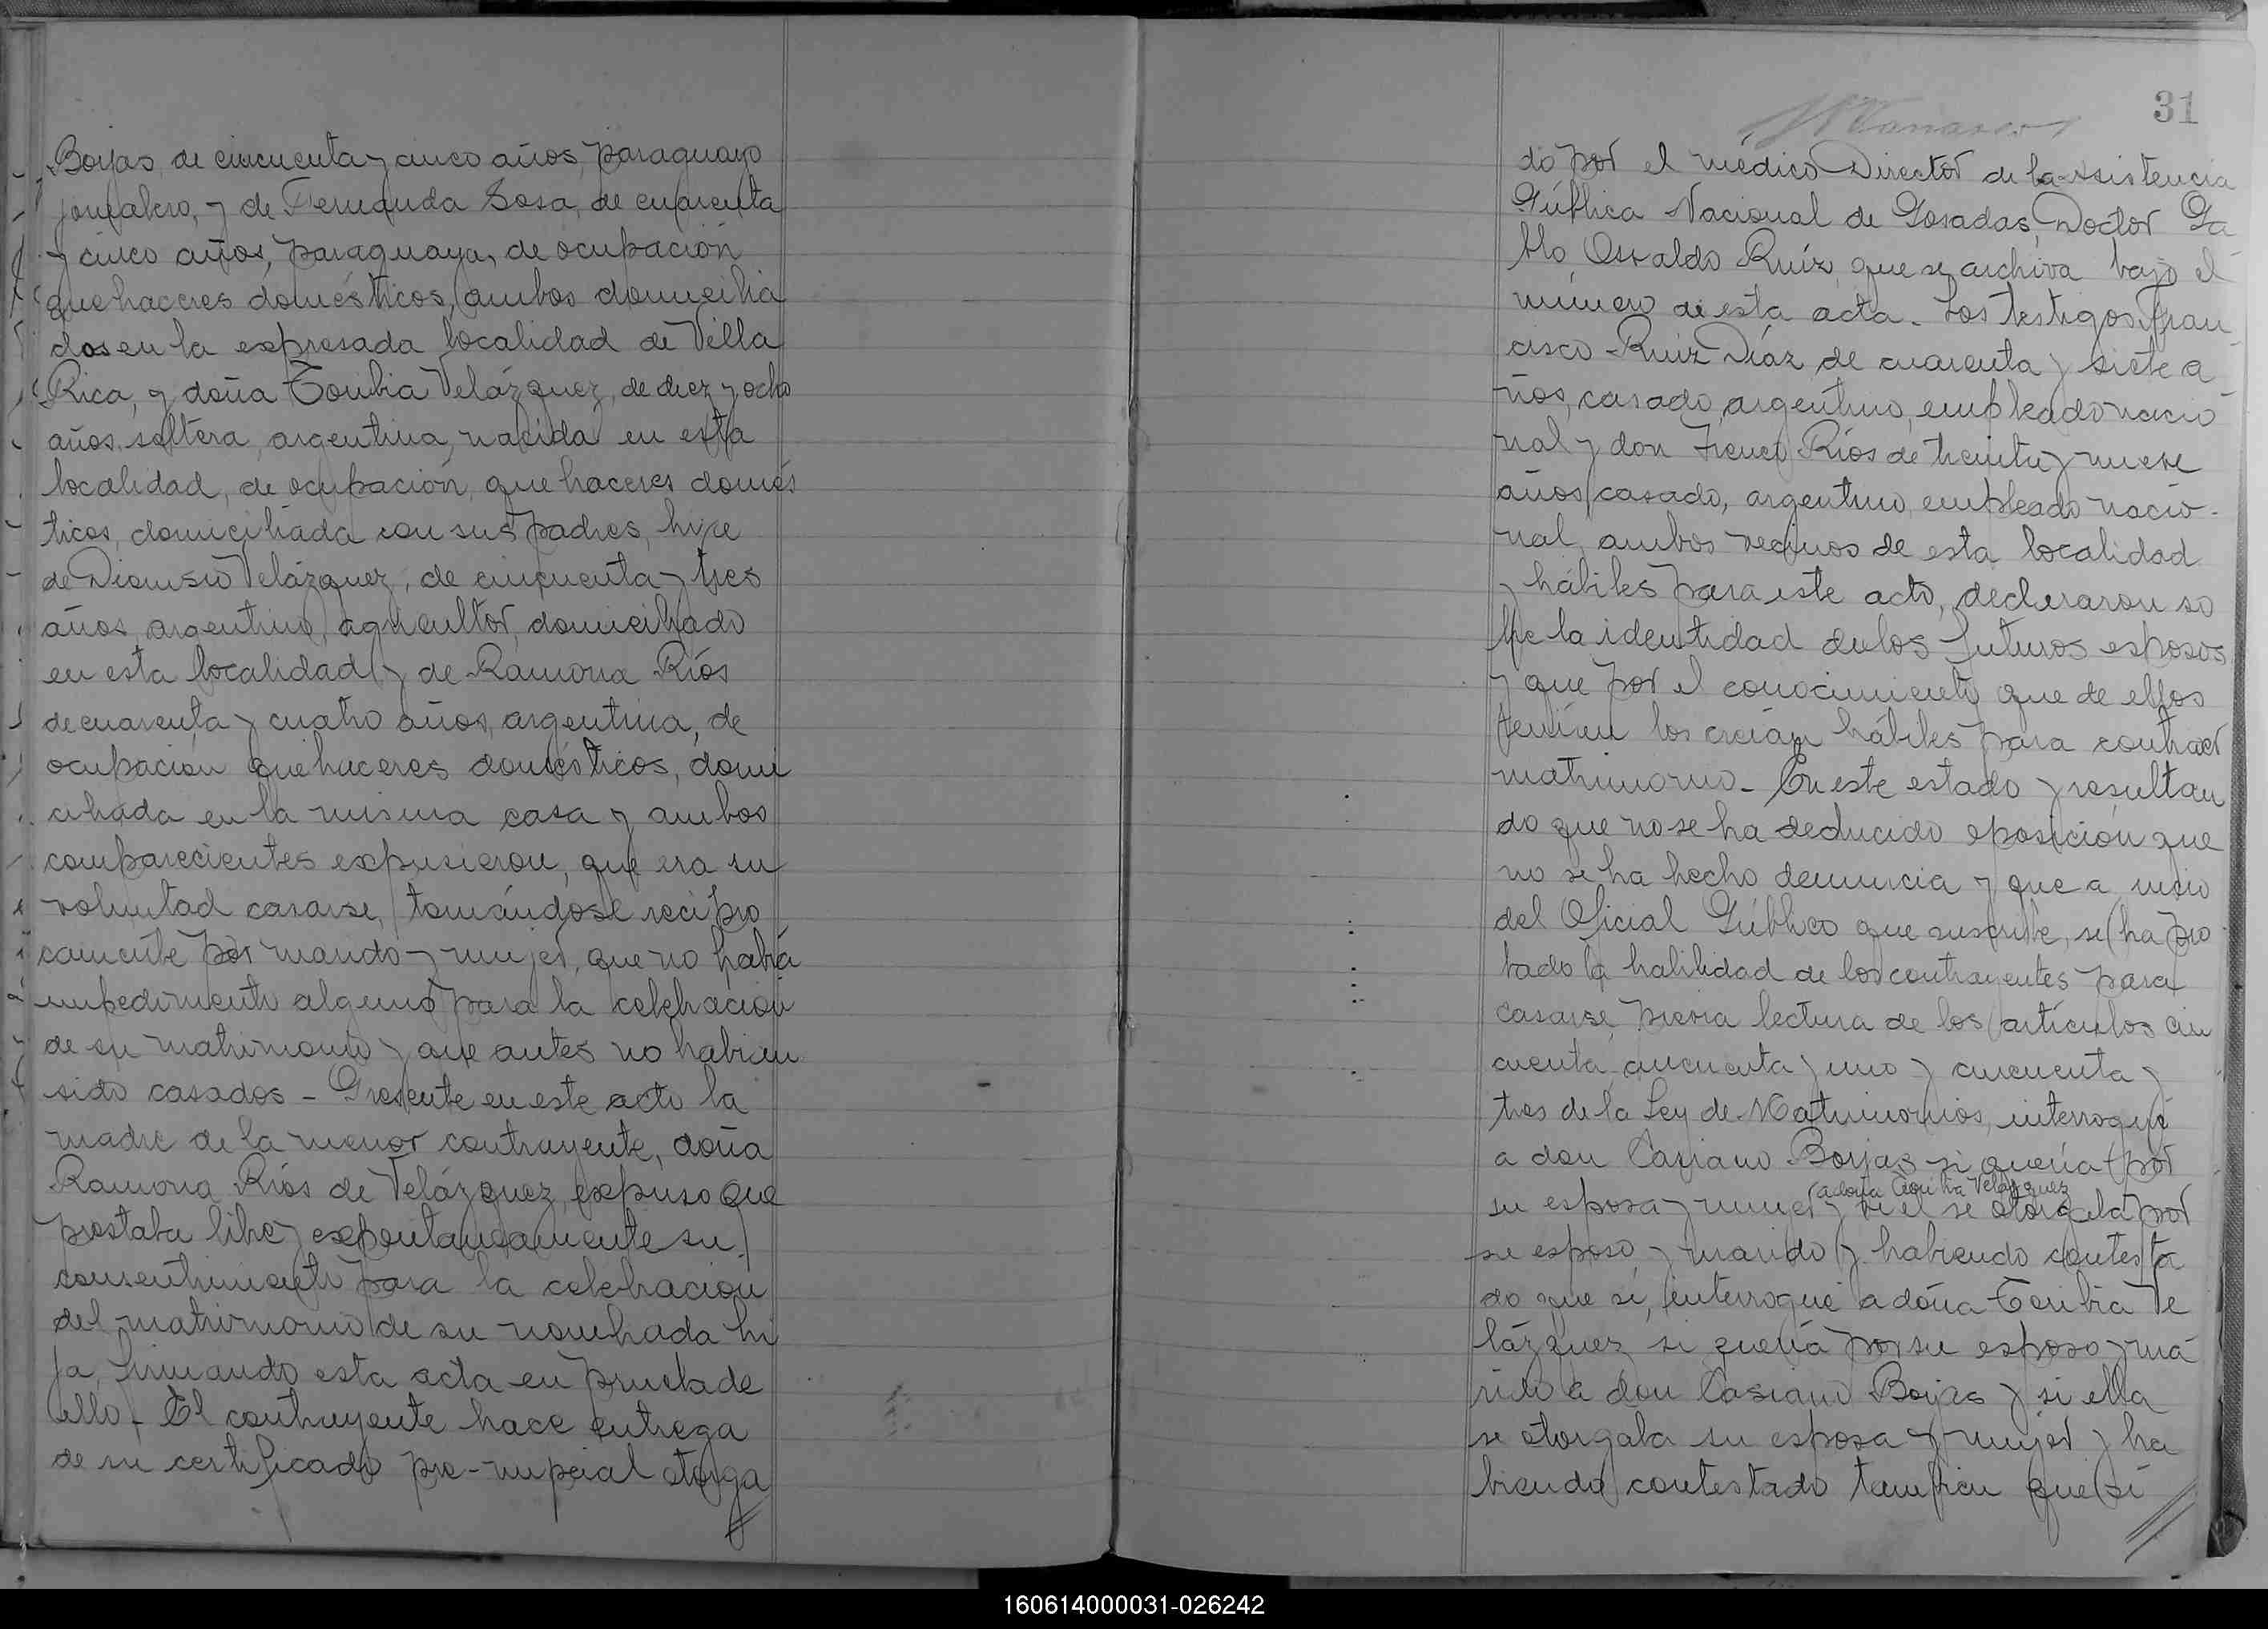 Borjas, de cincuenta y cinco años, paraguayo
jornalero, y de Fernanda Sosa, de cuarenta
y cinco años, paraguaya, de ocupación
quehaceres domésticos, ambos domicilia
dos en la expresada localidad de Villa
Rica, y doña Toribia Velázquez, de diez y ocho
años, soltera, argentina, nacida en esta
localidad, de ocupación, quehaceres domés
ticos, domiciliada con sus padres, hija
de Dionisio Velázquez, de cincuenta y tres
años, argentino, agricultor, domiciliado
en esta localidad y de Ramona Ríos
de cuarenta y cuatro años, argentina, de
ocupación quehaceres domésticos, domi
ciliada en la misma casa y ambos
comparecientes expusieron, que era su
voluntad casarse, tomándose recipro
camente por marido y mujer, que no había
impedimento alguno para la celebración
de su matrimonio y que antes no habian
sido casados - Presente en este acto la
madre de la menor contrayente, doña
Ramona Ríos de Velázquez, expuso que
prestaba libre y expontaneamente su
consentimiento para la celebración
del matrimonio de su nombrada hi
ja, firmando esta acta en prueba de
ello - El contrayente hace entrega
de su certificado pre-nupcial otorga
31
do por el médico Director de la Asistencia
Pública Nacional de Posadas, Doctor Pa
blo Osvaldo Ruíz, que se archiva bajo el
número de esta acta. Los testigos, Fran
cisco Ruiz Díaz, de cuarenta y siete a
ños, casado, argentino, empleado nacio
nal y don Ríos de treinta y nueve
años, casado, argentino, empleado nacio-
nal, ambos vecinos de esta localidad
y hábiles para este acto, declararon so
bre la identidad de los futuros esposos
y que por el conocimiento que de ellos
tenían los creían hábiles para contraer
matrimonio - En este estado y resultan
do que no se ha deducido oposición que
no se ha hecho denuncia y que a juicio
del Oficial Público que suscribe, se ha pro
bado la habilidad de los contrayentes para
casarse, previa lectura de los artículos cin
cuenta, cincuenta y uno y cincuenta y
tres de la Ley de Matrimonios, interrogué
a don Casiano Borjas si quería por
a doña Toribia Velázquez
su esposa y mujer y si él se otorgaba por
su esposo y marido y habiendo contesta
do que sí, interrogué a doña Toribia Ve
lázquez si quería por su esposo y ma
rido a don Casiano Borjas y si ella
se otorgaba su esposa y mujer y ha
biendo contestado tambien que sí
160614000031-026242